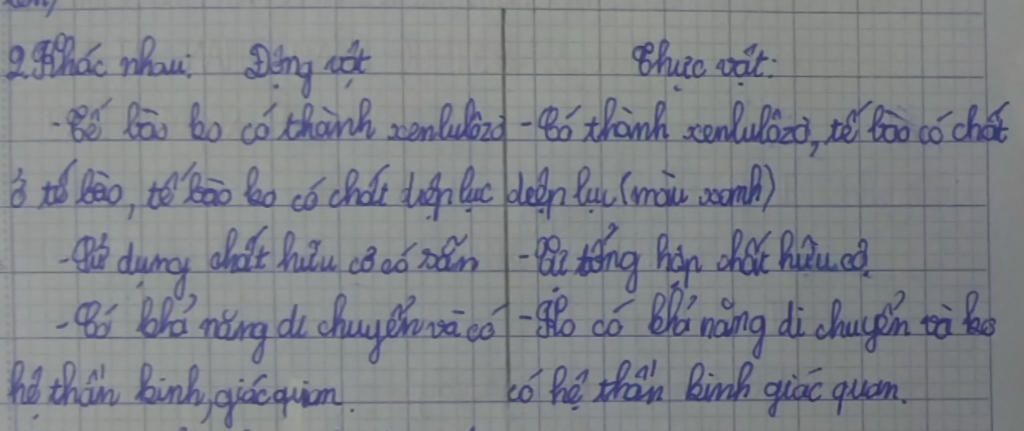 2. Khác nhau: Động vật
- Tế bào ko có thành xenlulôzơ
ở tế bào, tế bào ko có chất diệp lục
- Sử dụng chất hữu cơ có sẵn
- Có khả năng di chuyển và có
hệ thần kinh, giác quan.
Thực vật:
- Có thành xenlulôzơ, tế bào có chất
diệp lục (màu xanh)
- Tự tổng hợp chất hữu cơ
- Ko có khả năng di chuyển và ko
có hệ thần kinh giác quan.